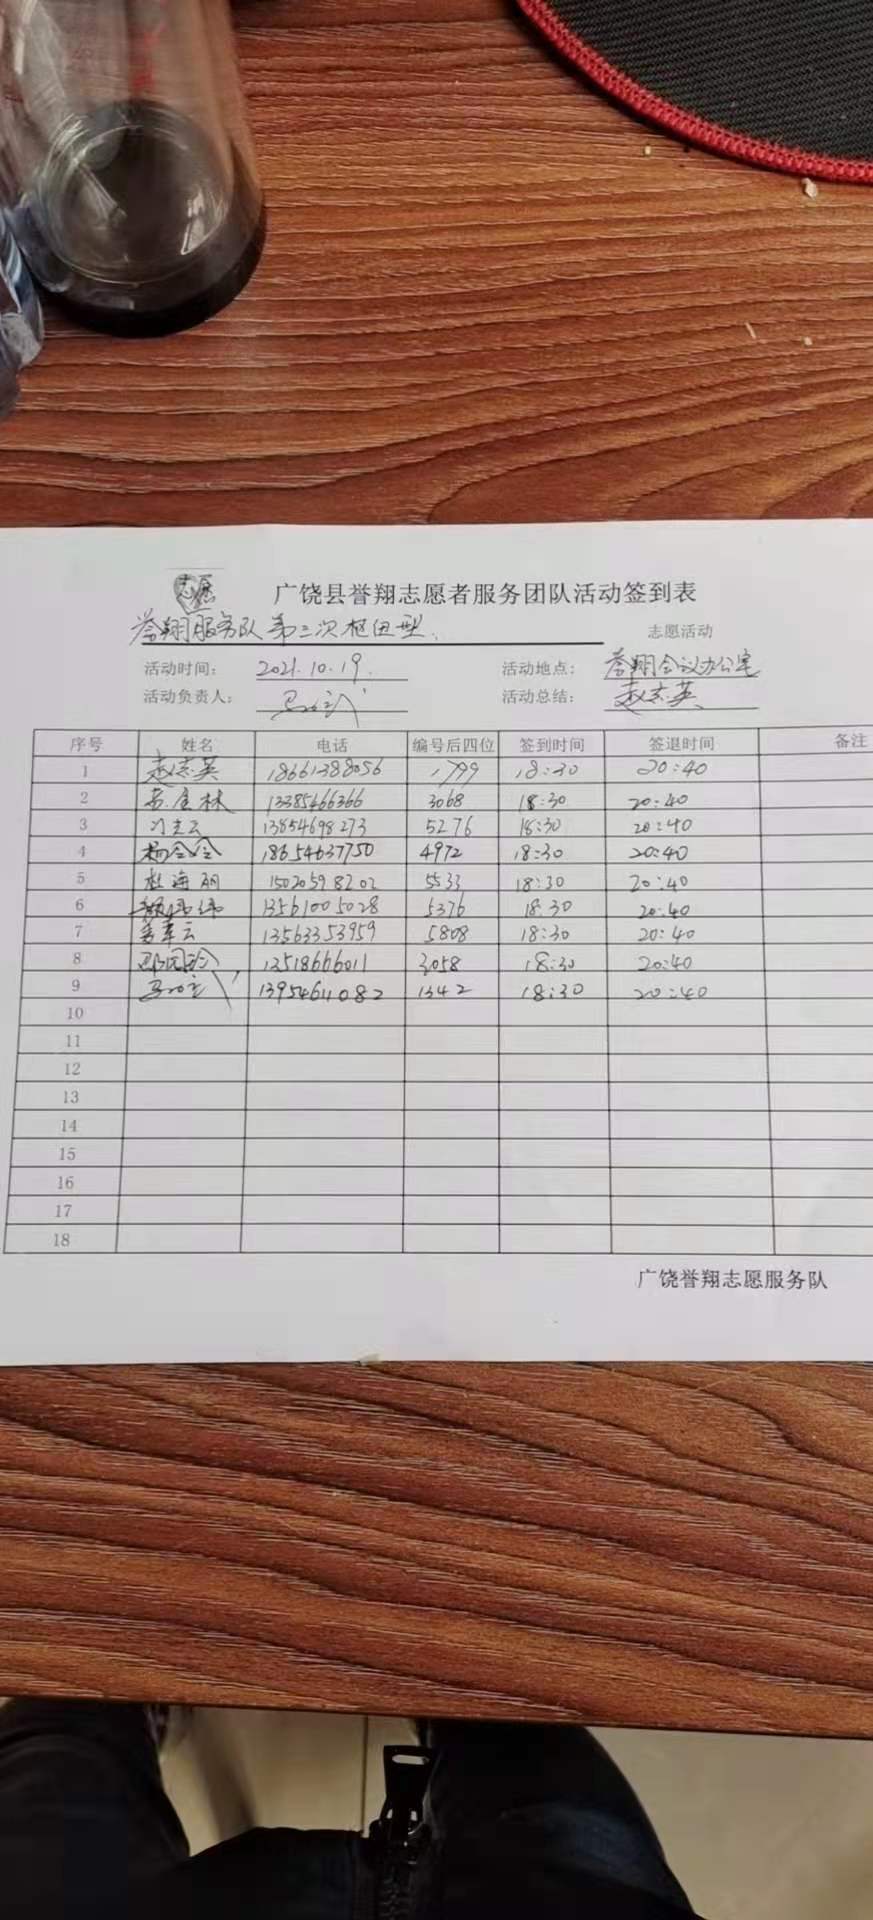 志愿
广饶县誉翔志愿者服务团队活动签到表
誉翔服务队第三次枢纽型 志愿活动
活动时间: 2021.10.19. 活动地点: 誉翔会议办公室
活动负责人: 活动总结: 赵志英
序号 姓名 电话 编号后四位 签到时间 签退时间 备注
1 赵志英 18661388056 1799 18:30 20:40
2 金林 13385466366 3068 18:30 20:40
3 13854698273 5276 18:30 20:40
4 杨会会 18654637750 4972 18:30 20:40
5 杜海丽 15020598202 5533 18:30 20:40
6 13561005028 5376 18:30 20:40
7 13563353959 5808 18:30 20:40
8 13518666011 3058 18:30 20:40
9 13954611082 1342 18:30 20:40
10
11
12
13
14
15
16
17
18
广饶誉翔志愿服务队